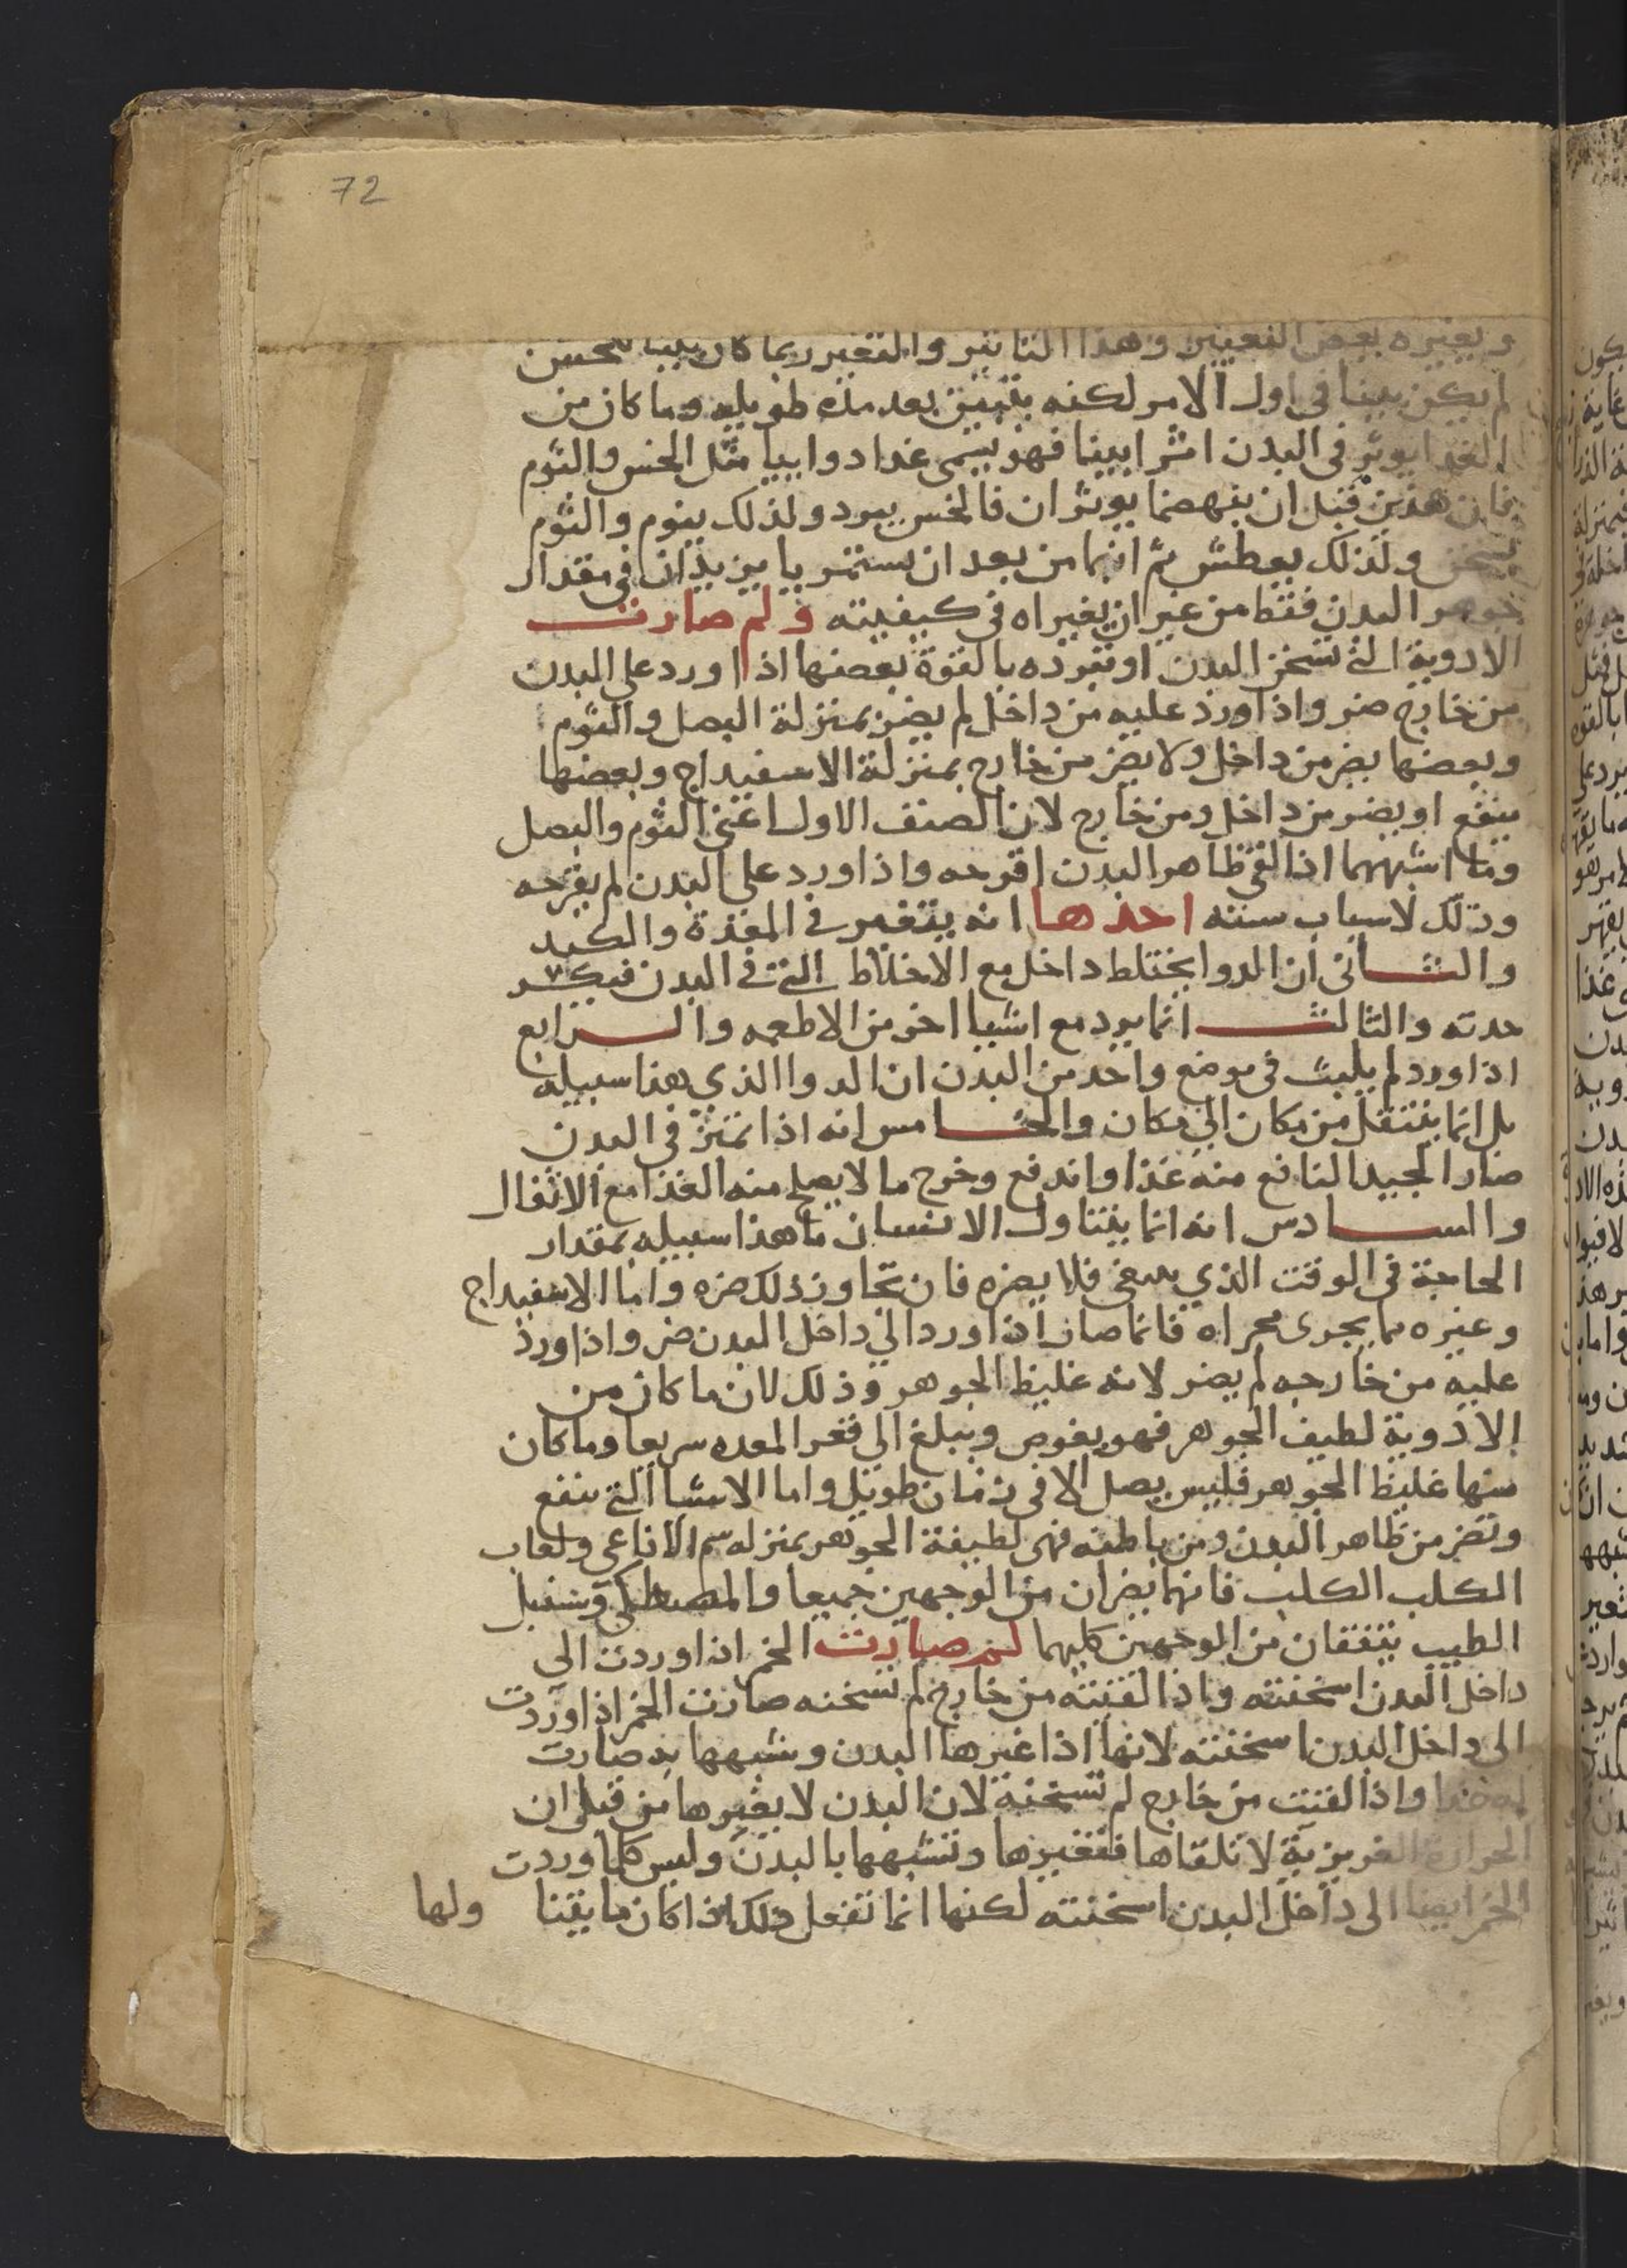 72
ويغيره بعض التغيير وهذا التاثير والتغيير ربما كان
لم يكن بينا في اول الامر لكنه يتبين بعد مده طويله وما كان من
الغذا يوثر في البدن اثرا بينا فهو يسمى غذا دوابيا مثل الخس والثوم
فان هذين قبل ان ينهضما يوثران فالخس يبرد ولذلك ينوم والثوم
يسخن ولذلك يعطش ثم انهما من بعد ان يستمريا يزيدان في مقدار
جوهر البدن فقط من غير ان يغيراه في كيفيته ولم صارت
الادوية التي تسخن البدن او تبرده بالقوة بعضها اذا اورد على البدن
من خارج ضر واذا ورد عليه من داخل لم يضر بمنزلة البصل والثوم
وبعضها يضر من داخل ولا يضر من خارج بمنزلة الاسفيداج وبعضها
ينفع او يضر من داخل ومن خارج لان الصنف الاول اعني الثوم والبصل
وما اشبههما اذا لقي ظاهر البدن اقرحه واذا ورد على البدن لم يقرحه
وذلك لاسباب سته احدها انه يتغير في المعدة والكبد
والثاني ان الدوا يختلط داخل مع الاخلاط التي في البدن فيكسر
حدته والثالث انما يرد مع اشيا اخر من الاطعمه والرابع
اذا ورد لم يلبث في موضع واحد من البدن ان الدوا الذي هذا سبيله
بل انما ينتقل من مكان الي مكان والخامس انه اذا تميز في البدن
صار الجيد النافع منه غذا واندفع وخرج ما لا يصلح منه الغذا مع الاثفال
والسادس انه انما يتناول الانسان ما هذا سبيله بمقدار
الحاجة في الوقت الذي ينبغي فلا يضره فان تجاوز ذلك ضره واما الاسفيداج
وغيره مما يجرى مجراه فانما صار اذا ورد الي داخل البدن ضر واذا ورد
عليه من خارجه لم يضر لانه غليظ الجوهر وذلك لان ما كان من
الادوية لطيف الجوهر فهو يغوص ويبلغ الي قعر المعده سريعا وما كان
منها غليظ الجوهر فليس يصل الا في زمان طويل واما الاشيا التي تنفع
وتضر من ظاهر البدن ومن باطنه فهي لطيفة الجوهر بمنزله سم الافاعي ولعاب
الكلب الكلب فانهما يضران من الوجهين جميعا والمصطكي وسنبل
الطيب ينفعان من الوجهين كليهما لم صارت الخمر اذا وردت الي
داخل البدن اسخنته واذا القيته من خارج لم تسخنه صارت الخمر اذا وردت
الى داخل البدن اسخنته لانها اذا غيرها البدن وشبهها به صارت
له غذا واذا القيت من خارج لم تسخنه لان البدن لا يغيرها من قبل ان
الحرارة الغريزية لا تلقاها فتغيرها وتشبهها بالبدن وليس كلما وردت
الخمر ايضا الى داخل البدن اسخنته لكنها انما تفعل ذلك اذا كان ما يقينا ولها